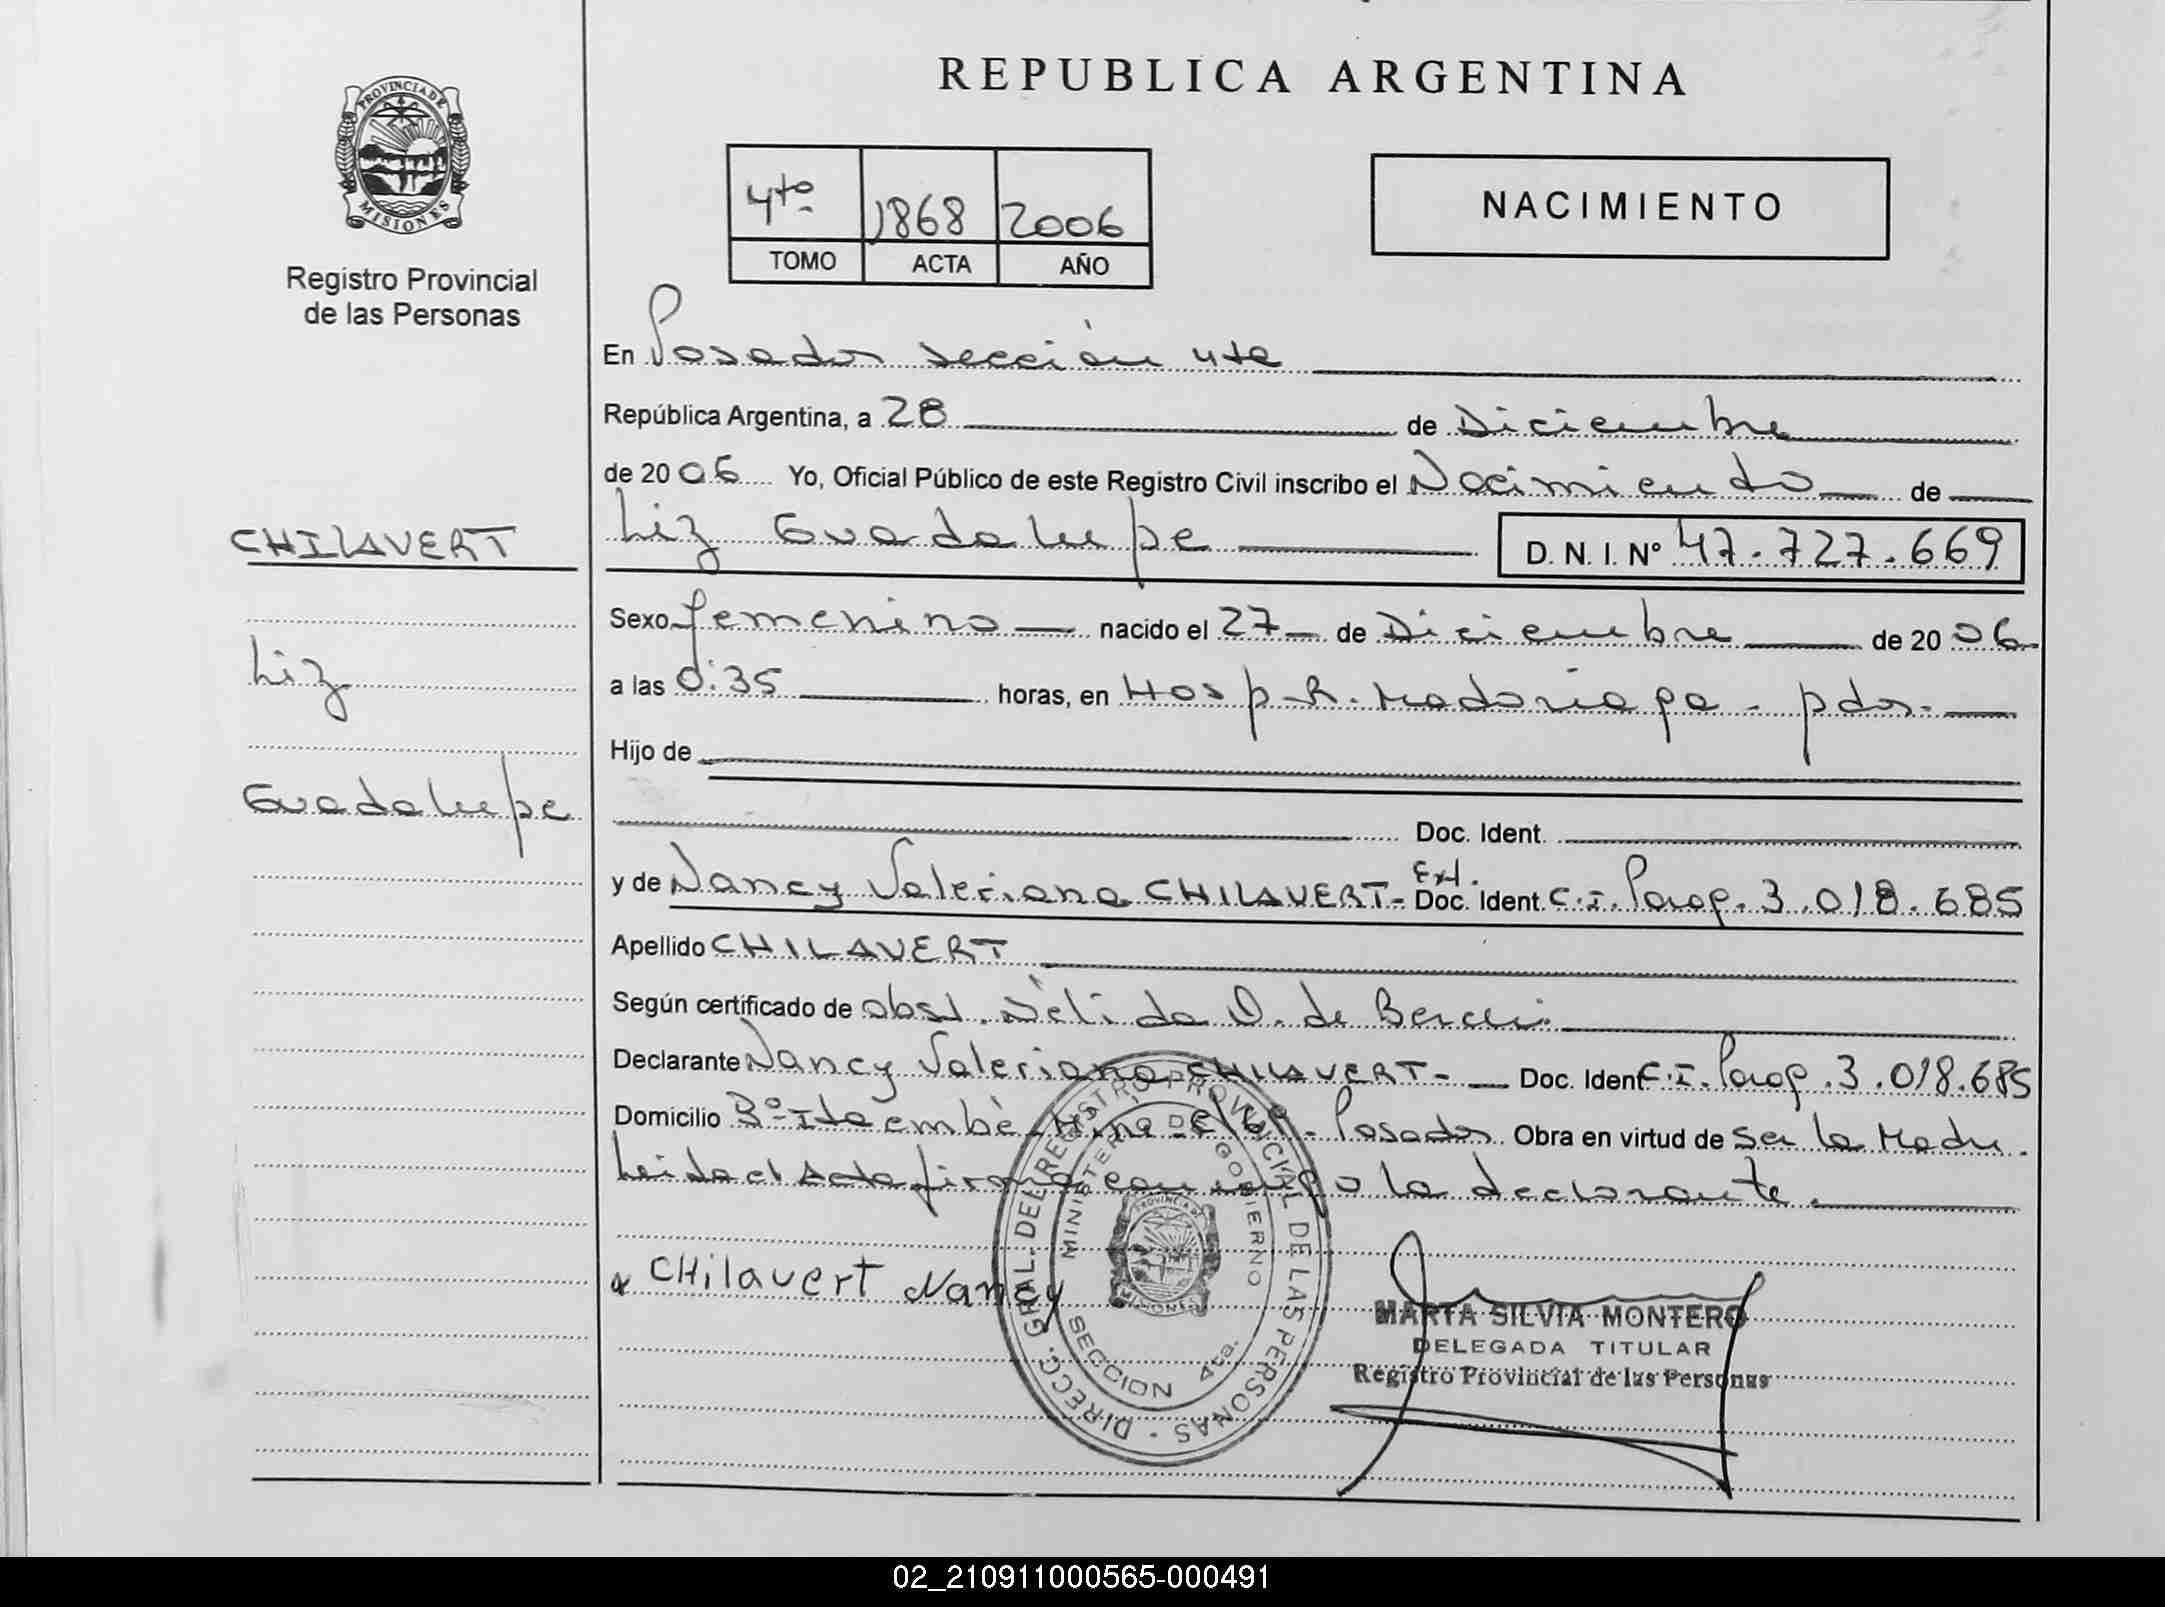 REPUBLICA ARGENTINA
PROVINCIA DE
MISIONES
Registro Provincial
de las Personas
4to 1868 2006
TOMO ACTA AÑO
NACIMIENTO
En Posadas sección 4ta
República Argentina, a 28 de Diciembre
de 20 06 Yo, Oficial Público de este Registro Civil inscribo el Nacimiento de
CHILAVERT
Liz Guadalupe D. N. I. Nº 47.727.669
Sexo femenino nacido el 27 de Diciembre de 20 06
Liz
a las 0:35 horas, en Hosp. R. Madariaga - pdas.
Hijo de
Guadalupe
Doc. Ident.
y de Nancy Valeriana CHILAVERT- Ext. Doc. Ident. C.I. Parag. 3.018.685
Apellido CHILAVERT
Según certificado de obst. Nélida D. de
Declarante Nancy Valeriana CHILAVERT- Doc. Ident. C.I. Parag. 3.018.685
Domicilio Bº Itaembé Posadas Obra en virtud de ser la Madre.
Leida el Acta firma conmigo la declarante.
x CHilavert Nancy
DIRECC. GRAL. DEL REGISTRO PROVINCIAL DE LAS PERSONAS
MINISTERIO DE GOBIERNO
PROVINCIA DE
MISIONES
SECCION 4ta.
MARTA SILVIA MONTERO
DELEGADA TITULAR
Registro Provincial de las Personas
02_210911000565-000491